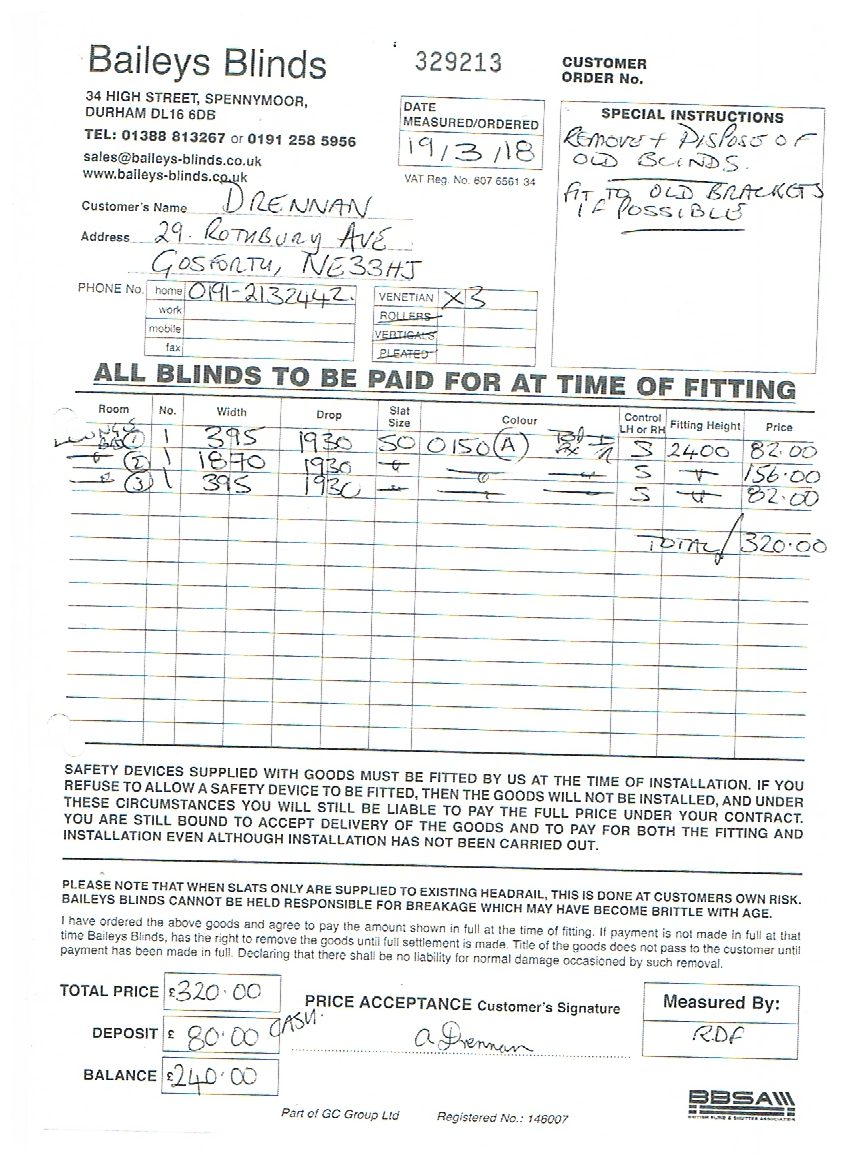 Baileys Blinds
329213
CUSTOMER
ORDER No.
34 HIGH STREET, SPENNYMOOR,
DURHAM DL16 6DB
TEL: 01388 813267 or 0191 258 5956
sales@baileys-blinds.co.uk
www.baileys-blinds.co.uk
DATE
MEASURED/ORDERED
19/3/18
VAT Reg. No. 607 6561 34
SPECIAL INSTRUCTIONS
REMOVE + DISPOSE OF
OLD BLINDS.
FIT TO OLD BRACKETS
IF POSSIBLE
Customer's Name DRENNAN
Address 29. ROTHBURY AVE
GOSFORTH, NE33HJ
PHONE No. home 0191-2132442.
work
mobile
fax
VENETIAN X3
ROLLERS
VERTICALS
PLEATED
ALL BLINDS TO BE PAID FOR AT TIME OF FITTING
Room No. Width Drop Slat Size Colour Control LH or RH Fitting Height Price
(1) 1 395 1930 50 0150 (A) S 2400 82.00
(2) 1 1870 1930 S 156.00
(3) 1 395 1930 S 82.00
TOTAL 320.00
SAFETY DEVICES SUPPLIED WITH GOODS MUST BE FITTED BY US AT THE TIME OF INSTALLATION. IF YOU
REFUSE TO ALLOW A SAFETY DEVICE TO BE FITTED, THEN THE GOODS WILL NOT BE INSTALLED, AND UNDER
THESE CIRCUMSTANCES YOU WILL STILL BE LIABLE TO PAY THE FULL PRICE UNDER YOUR CONTRACT.
YOU ARE STILL BOUND TO ACCEPT DELIVERY OF THE GOODS AND TO PAY FOR BOTH THE FITTING AND
INSTALLATION EVEN ALTHOUGH INSTALLATION HAS NOT BEEN CARRIED OUT.
PLEASE NOTE THAT WHEN SLATS ONLY ARE SUPPLIED TO EXISTING HEADRAIL, THIS IS DONE AT CUSTOMERS OWN RISK.
BAILEYS BLINDS CANNOT BE HELD RESPONSIBLE FOR BREAKAGE WHICH MAY HAVE BECOME BRITTLE WITH AGE.
I have ordered the above goods and agree to pay the amount shown in full at the time of fitting. If payment is not made in full at that
time Baileys Blinds, has the right to remove the goods until full settlement is made. Title of the goods does not pass to the customer until
payment has been made in full. Declaring that there shall be no liability for normal damage occasioned by such removal.
TOTAL PRICE £320.00
DEPOSIT £ 80.00 CASH.
BALANCE £240.00
PRICE ACCEPTANCE Customer's Signature
A Drennan
Measured By:
RDF
BBSA
BRITISH BLIND & SHUTTER ASSOCIATION
Part of GC Group Ltd Registered No.: 146007